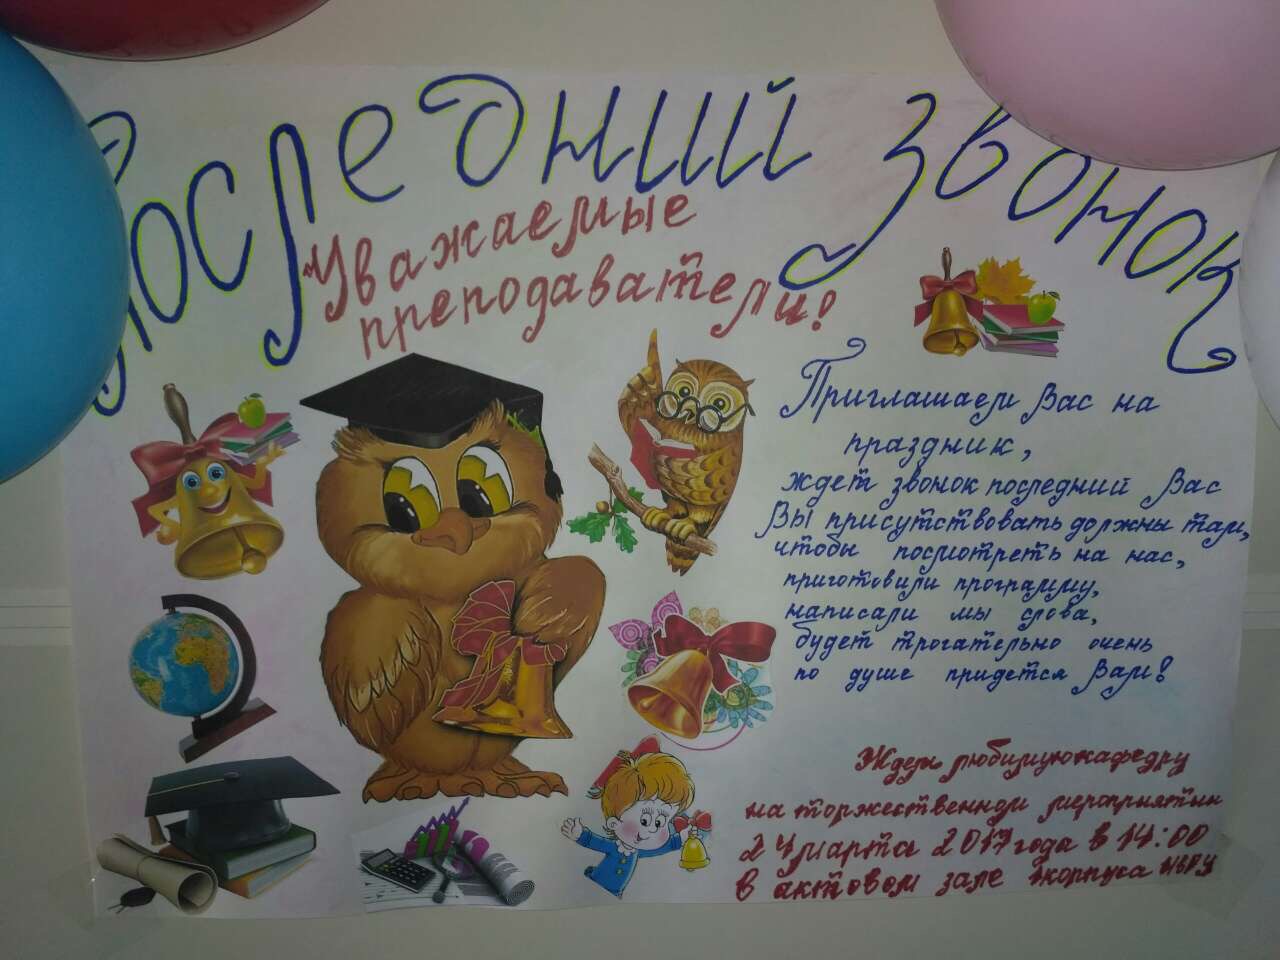 Последний звонок
Уважаемые
преподаватели!
Приглашаем Вас на
праздник,
ждет звонок последний Вас
Вы присутствовать должны там,
чтобы посмотреть на нас,
приготовили программу,
написали мы слова,
будет трогательно очень
по душе придется Вам!
Ждем любимую кафедру
на торжественном мероприятии
24 марта 2017 года в 14:00
в актовом зале корпуса